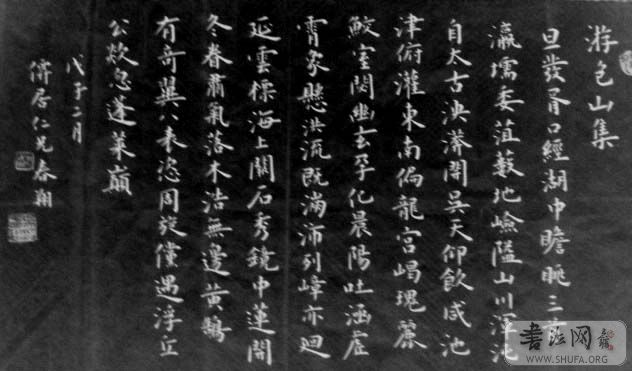 游包山集
旦發胥口經湖中瞻眺三
瀛壖委菹藪地嶮隘山川渾沌
自太古泱漭開吳天仰飲咸池
津俯灌東南偏龍宮崛瑰麗
鮫室閟幽玄孕化晨陽吐涵虛
霄象懸洪流既滿沛列嶂亦迴
延雲標海上關石秀鏡中蓮開
冬春肅氣落木浩無邊黃鵠
有奇翼八表恣周旋儻遇浮丘
公欻忽蓬萊巔
戊子二月
儕居仁兄春翔
書法网
WWW.SHUFA.ORG